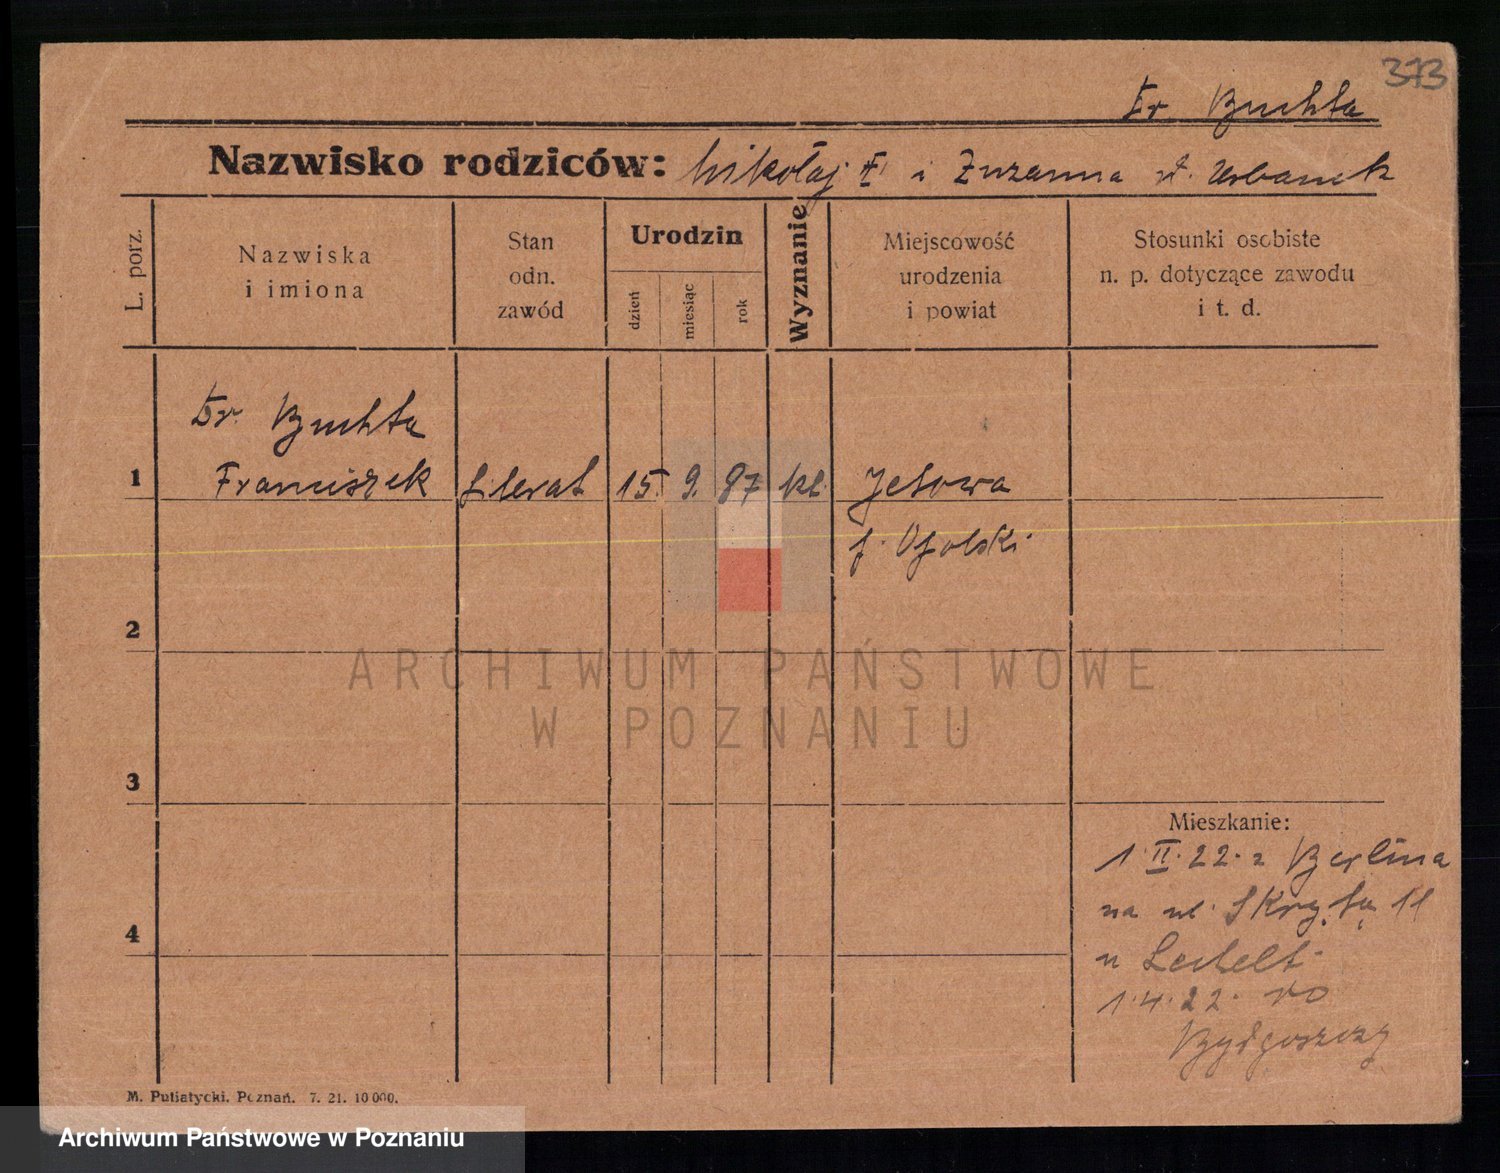 373
Dr. Buchta
Nazwisko rodziców: Mikołaj i Zuzanna Urbanek
L. porz.
Nazwiska
i imiona
Stan
odn.
zawód
Urodzin
dzień
miesiąc
rok
Wyznanie
Miejscowość
urodzenia
i powiat
Stosunki osobiste
n. p. dotyczące zawodu
i t. d.
Dr. Buchta
1 Franciszek Literat 15. 9. 87 kt. Jełowa
p. Opolski
2
3
4
Mieszkanie:
1. II. 22. z Berlina
na ul. Skrytą 11
u
1. 4. 22. do
Bydgoszczy
M. Putiatycki. Poznań. 7. 21. 10 000.
ARCHIWUM PAŃSTWOWE
W POZNANIU
Archiwum Państwowe w Poznaniu